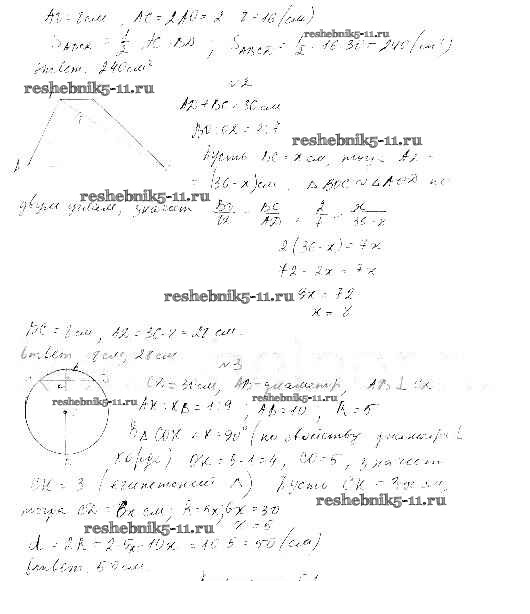 AO = 8 см, AC = 2AO = 2 · 8 = 16 (см)
S = 1/2 AC · BD ; S = 1/2 · 16 · 30 = 240 (см²)
Ответ. 240 см²
reshebnik5-11.ru
№2
AD + BC = 36 см
reshebnik5-11.ru
= 2:7
Пусть BC = x см, тогда AD =
A
= (36-x) см. Δ BOC ∾ Δ AOD по
reshebnik5-11.ru
двум углам, значит BC/AD = 2/7 = x/36-x
2(36-x) = 7x
72 - 2x = 7x
reshebnik5-11.ru
9x = 72
x = 8
BC = 8 см, AD = 36-8 = 28 см.
Ответ 8 см, 28 см
№3
AB - диаметр, AB ⊥
reshebnik5-11.ru
reshebnik5-11.ru
AX : XB = 1:9 ; AB = 10 , R = 5
= 90° (по свойству диаметра ⊥
хорде) OX = 5-1 = 4, CO = 5, значит
CX = 3 (египетский Δ) Пусть CX = 3x см,
reshebnik5-11.ru
тогда CD = 6x см, R = 5x, 6x = 30
reshebnik5-11.ru
x = 5
d = 2R = 2 · 5x = 10x = 10 · 5 = 50 (см)
Ответ. 50 см